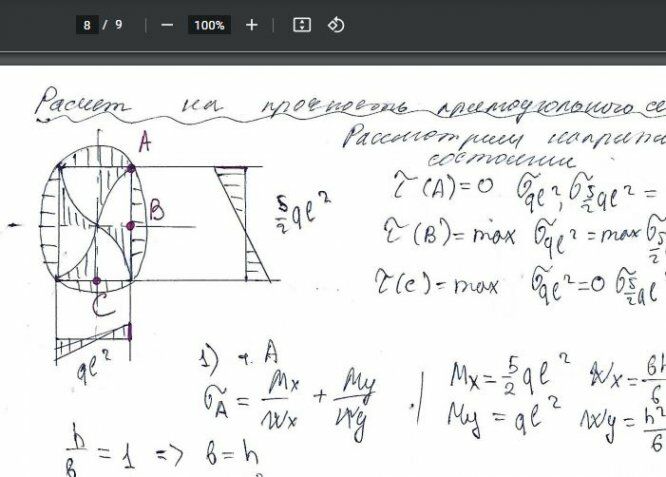 8 / 9 — 100% +
Расчет на прочность прямоугольного се
Рассмотрим напряже
состоянии
A
B
C
5/2 ql²
ql²
τ(A)=0 σql², σ5/2ql² =
τ(B)=max σql²=max σ5/2
τ(c)=max σql²=0 σ5/2ql
1) т. A
σA = Mx/Wx + My/Wy
Mx = 5/2 ql² Wx = bh/6
My = ql² Wy = h²/6
h/b = 1 => b = h